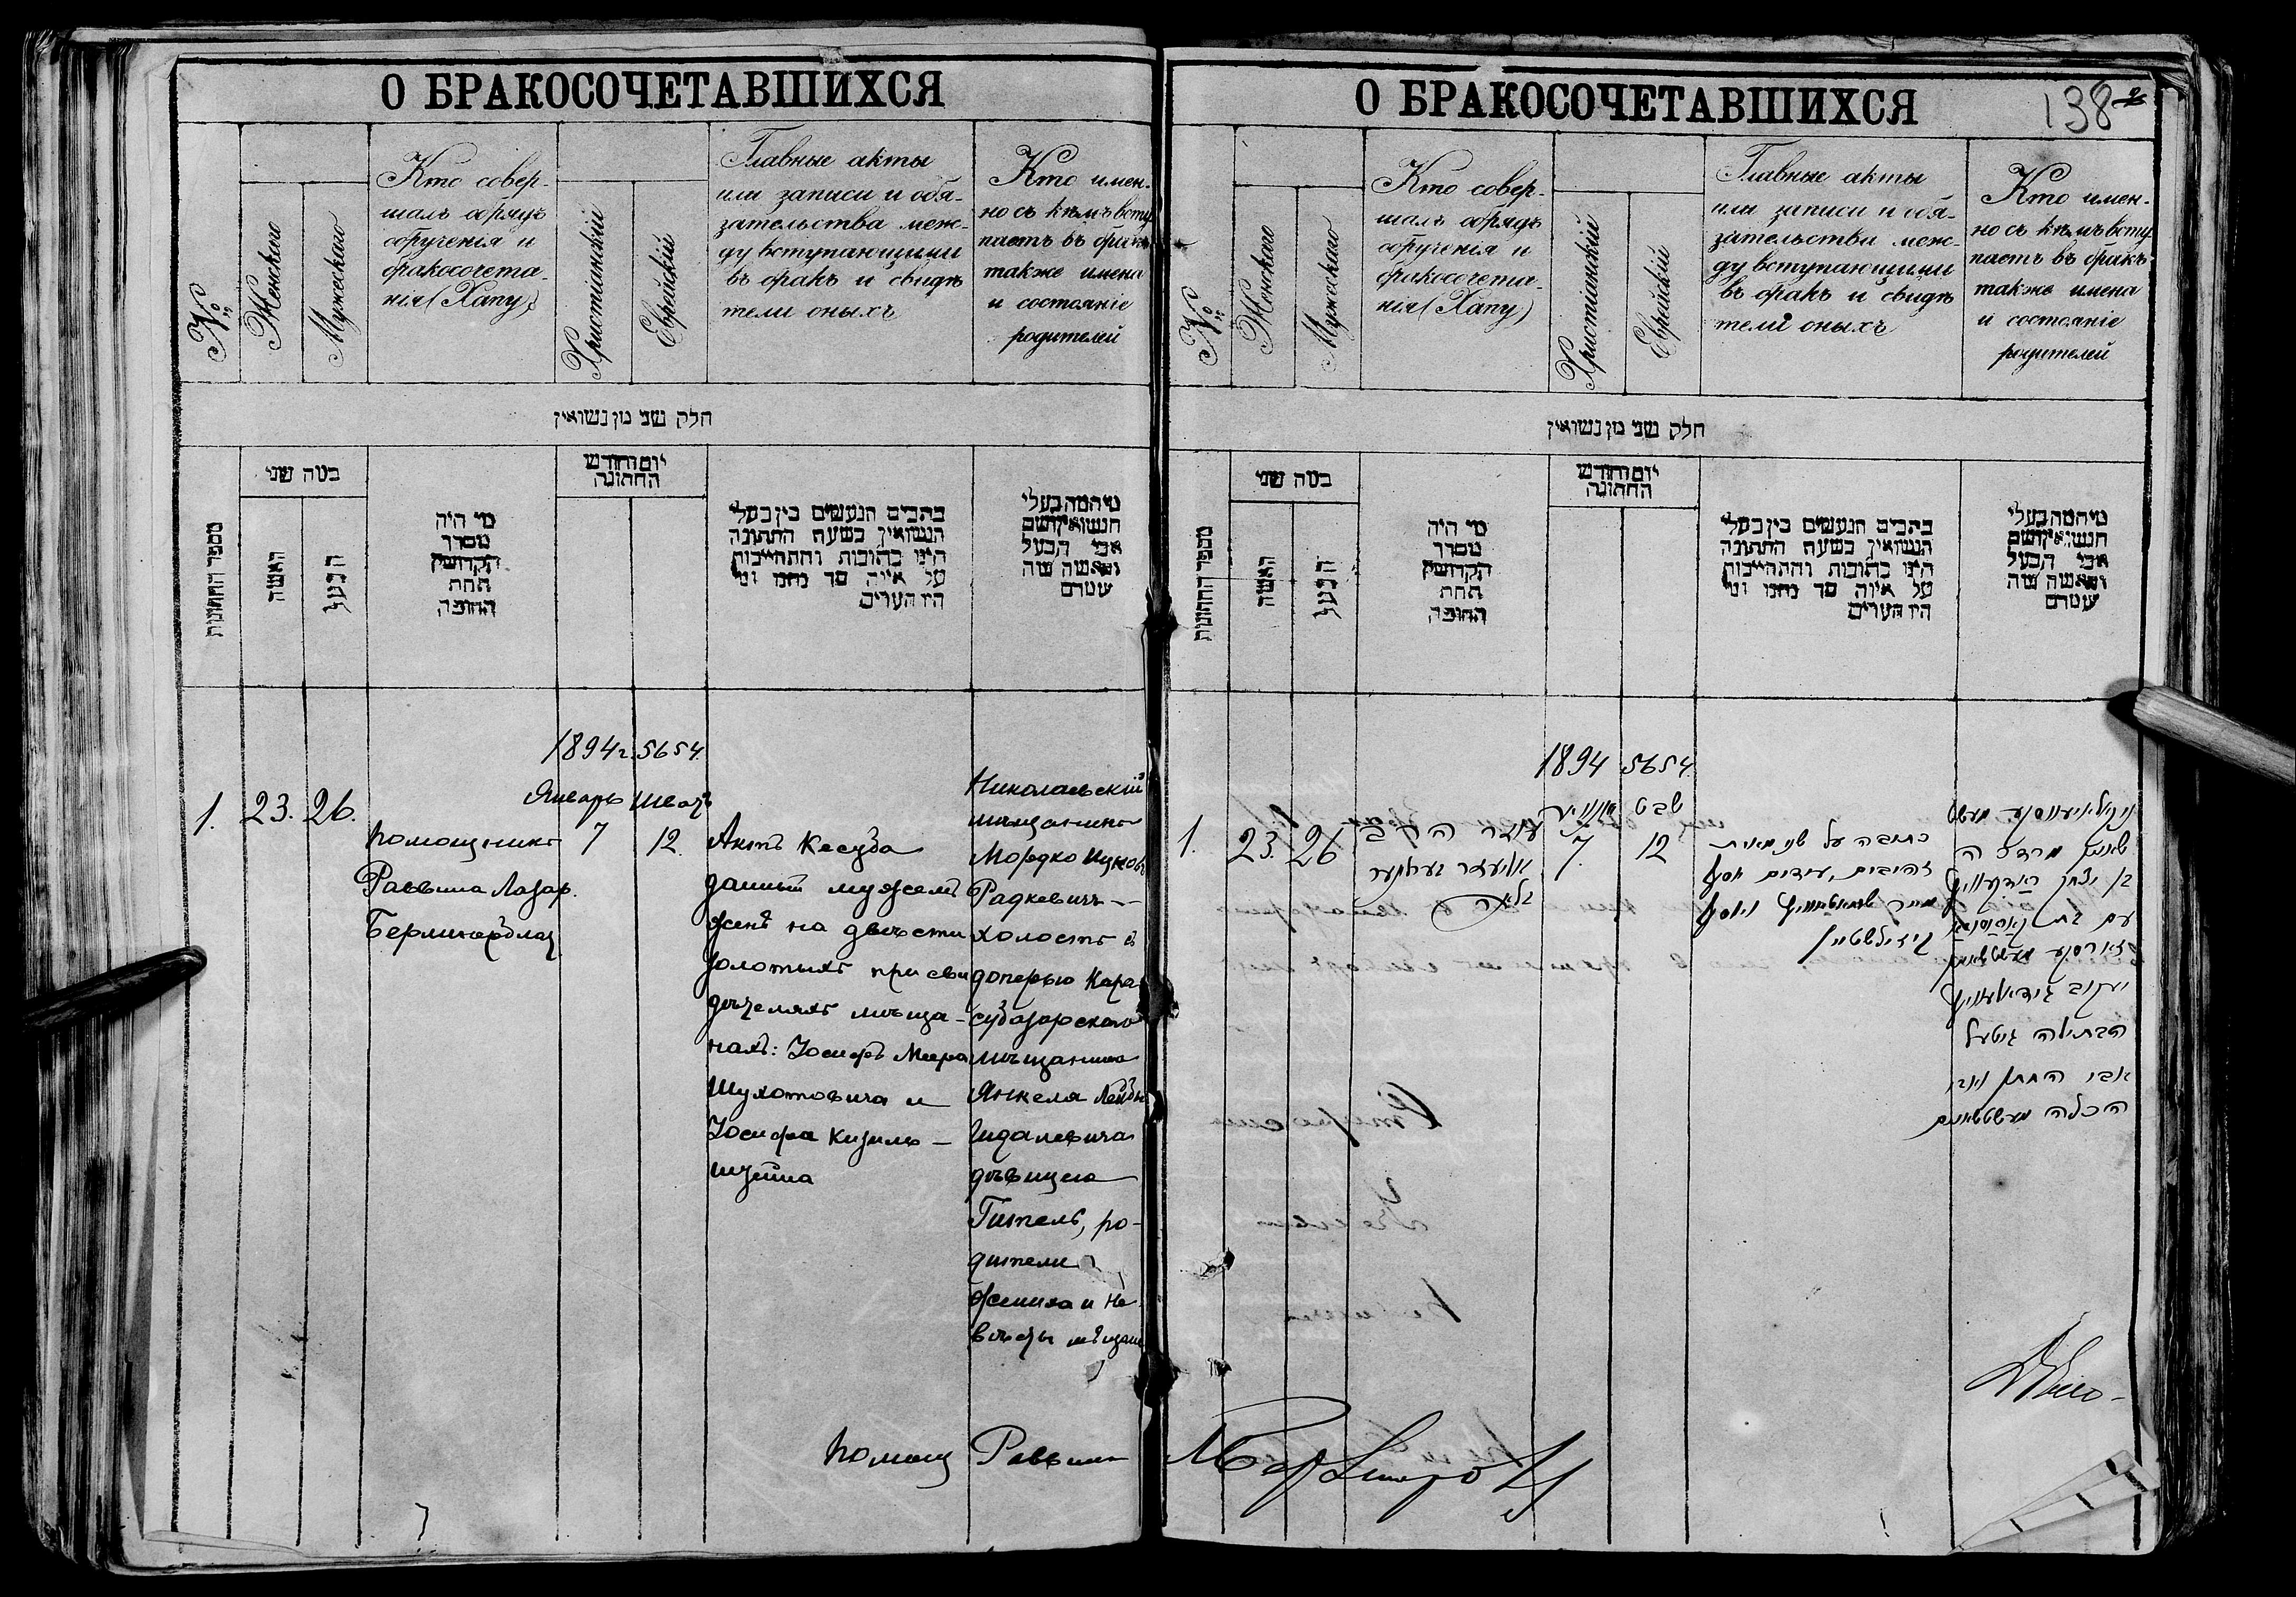 О БРАКОСОЧЕТАВШИХСЯ
№
Женскаго
Мужескаго
Кто совер-
шалъ обрядъ
обрученія и
бракосочета-
нія (Хапу)
Христіанскій
Еврейскій
Главные акты
или записи и обя-
зательства меж-
ду вступающими
въ бракъ и свидѣ
тели оныхъ
Кто имен-
но съ кѣмъ всту
паетъ въ бракъ
также имена
и состояніе
родителей
חלק שני מן נשואין
מספר החתונות
כמה שני
האשה
הבעל
מי היה
מסדר
הקדושין
תחת
החופה
יום וחודש
החתונה
כתבים הנעשים בין בעלי
הנשואין בשעת החתונה
היינו כתובות והתחייבות
על איזה סך נתנו ומי
היו העדים
מי המה בעלי
הנשואין ושם
אבי הבעל
והאשה ומה
שמם
1894 г. 5654.
Январь Шватъ
1. 23. 26.
помощникъ
Раввина Лазар.
7 12.
Актъ Кесуба
данный мужемъ
женѣ на двѣсти
золотыхъ при сви
дѣтеляхъ мѣща-
нахъ: Іосифъ Меера
Шухотовича и
Іосифа Кизиль-
штейна
Николаевскій
мѣщанинъ
Мордко Ицковъ
Радкевичъ -
холостъ съ
дочерью Кара
субазарскаго
мѣщанина
Янкеля Лейбы
Гидалевича
дѣвицею
Гитель, ро-
дители
жениха и не
вѣсты мѣщане
помощ Раввина
О БРАКОСОЧЕТАВШИХСЯ
138
№
Женскаго
Мужескаго
Кто совер-
шалъ обрядъ
обрученія и
бракосочета-
нія (Хапу)
Христіанскій
Еврейскій
Главные акты
или записи и обя-
зательства меж-
ду вступающими
въ бракъ и свидѣ
тели оныхъ
Кто имен-
но съ кѣмъ всту
паетъ въ бракъ
также имена
и состояніе
родителей
חלק שני מן נשואין
מספר החתונות
כמה שני
האשה
הבעל
מי היה
מסדר
הקדושין
תחת
החופה
יום וחודש
החתונה
כתבים הנעשים בין בעלי
הנשואין בשעת החתונה
היינו כתובות והתחייבות
על איזה סך נתנו ומי
היו העדים
מי המה בעלי
הנשואין ושם
אבי הבעל
והאשה ומה
שמם
1894 5654
יאנואר שבט
1. 23. 26
עוזר הרב
אליעזר
7. 12
כתובה על שני מאות
זהובים, עידים יוסף
מאיר ויוסף
קיזילשטיין
מרדכי
בן יצחק
עם בת
יעקב
הבתולה גיטעל
אבי החתן ואבי
הכלה